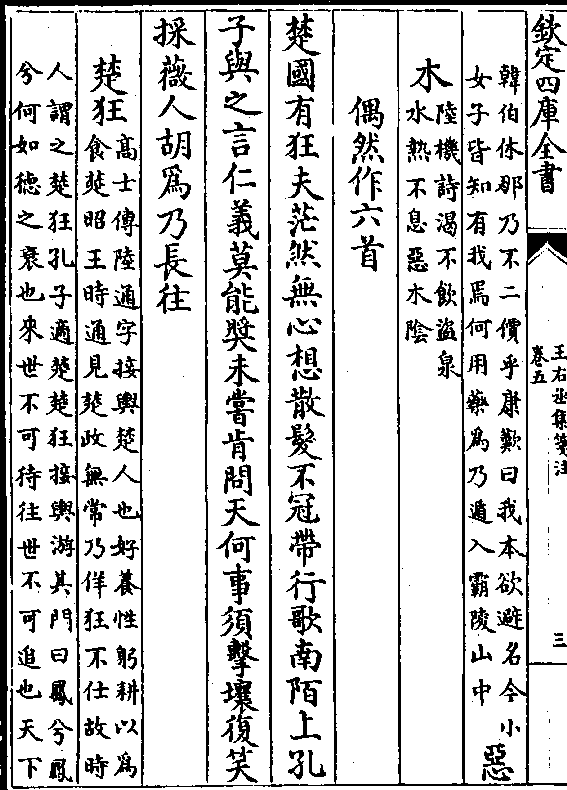 欽定四庫全書
王右丞集箋注
卷五
三
韓伯休那乃不二價乎康歎曰我本欲避名今小
女子皆知有我焉何用藥為乃遁入霸陵山中
惡
木
陸機詩渴不飲盜泉
水熱不息惡木陰
偶然作六首
楚國有狂夫茫然無心想散髮不冠帶行歌南陌上孔
子與之言仁義莫能奬未嘗肯問天何事須擊壤復笑
採薇人胡為乃長往
楚狂
髙士傳陸通字接輿楚人也好養性躬耕以為
食楚昭王時通見楚政無常乃佯狂不仕故時
人謂之楚狂孔子適楚楚狂接輿游其門曰鳳兮鳳
兮何如徳之衰也來世不可待往世不可追也天下